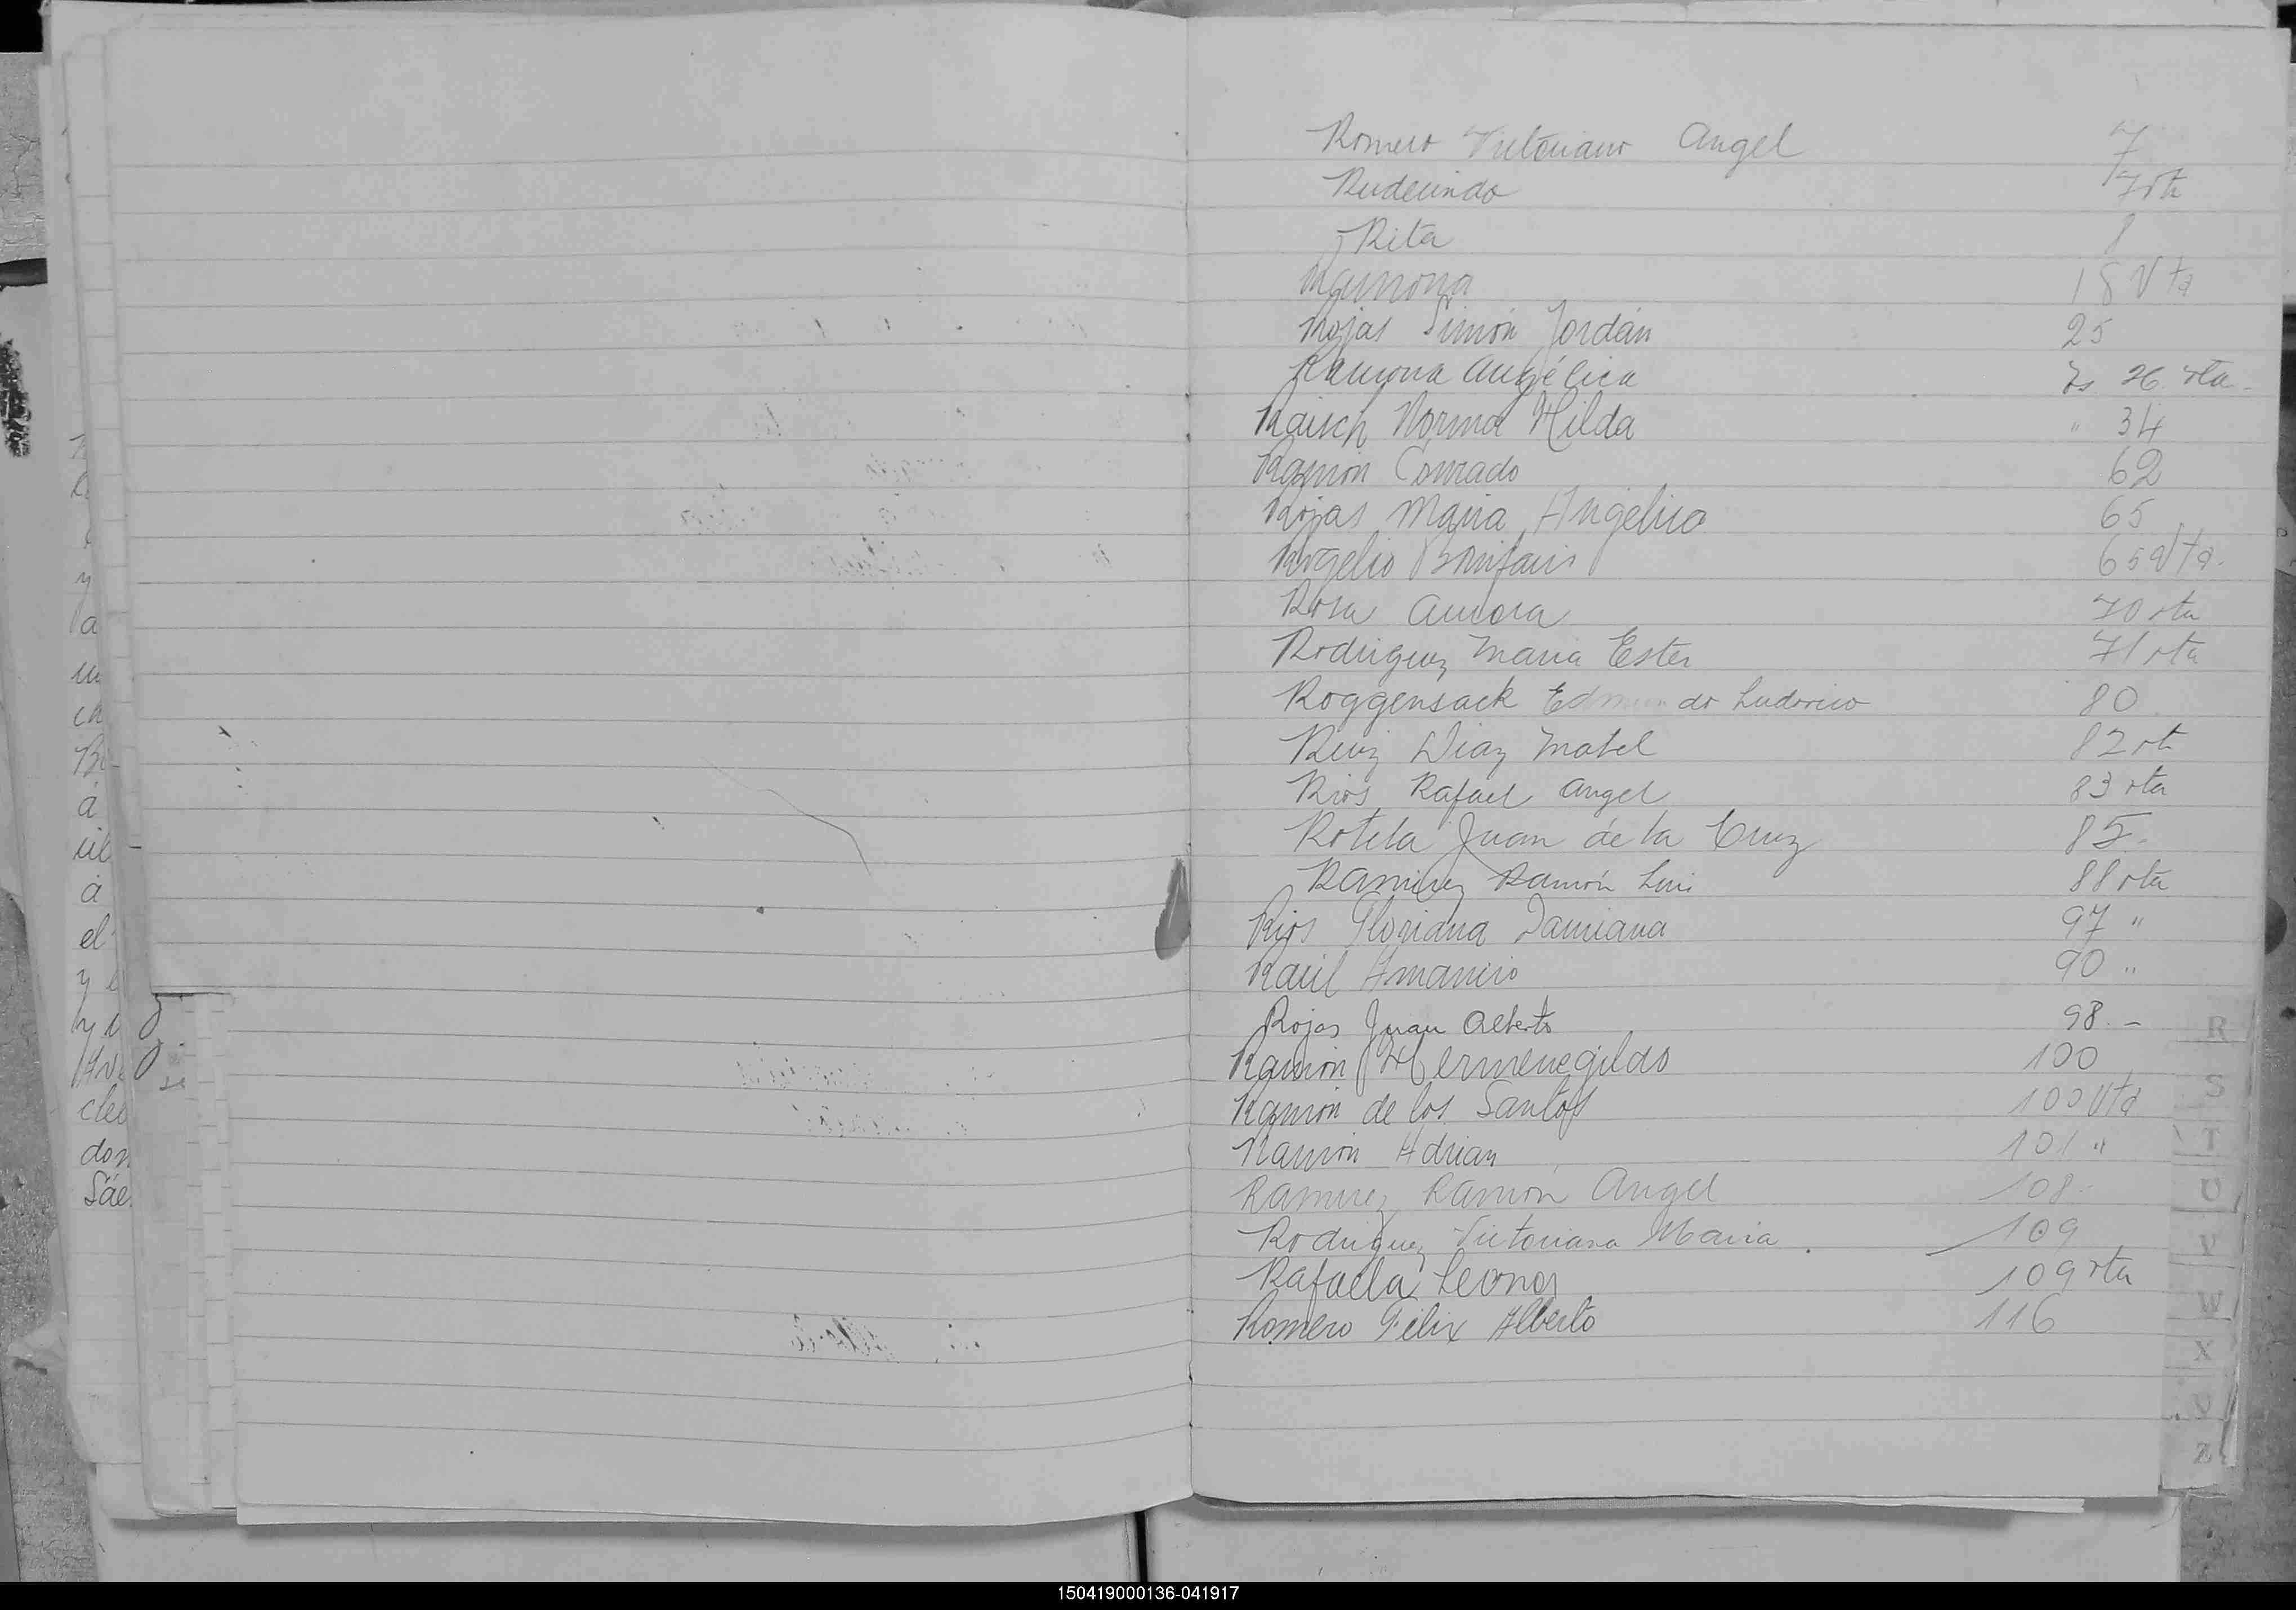 Romero Victoriano Angel 7
Rudecindo 7 vta
Rita 8
Ramona 18 Vta
Rojas Simón Jordán 25
Ramona Angélica Fs 26 vta.
Raisch Norma Hilda " 34
Ramón Conrado 62
Rojas Maria Angélica 65
Rogelio Bonifacio 65 Vta.
Rosa Aurora 70 vta
Rodriguez Maria Ester 71 vta
Roggensack Edmundo Ludovico 80
Ruiz Diaz Mabel 82 vta
Rios Rafael Angel 83 vta
Rotela Juan de la Cruz 85.
Ramirez Ramón Luis 88 vta
Rios Floriana Damiana 97 "
Raúl Amancio 90 "
Rojas Juan Alberto 98 -
Ramón Hermenegildo 100
Ramón de los Santos 100 Vta
Ramón Adrian 101 "
Ramirez Ramon Angel 108
Rodriguez Victoriana Maria 109
Rafaela Leonor 109 vta
Romero Félix Alberto 116
R
S
T
U
V
W
X
Z
a
ca
á
á
el
cleo
don
Sáe
150419000136-041917